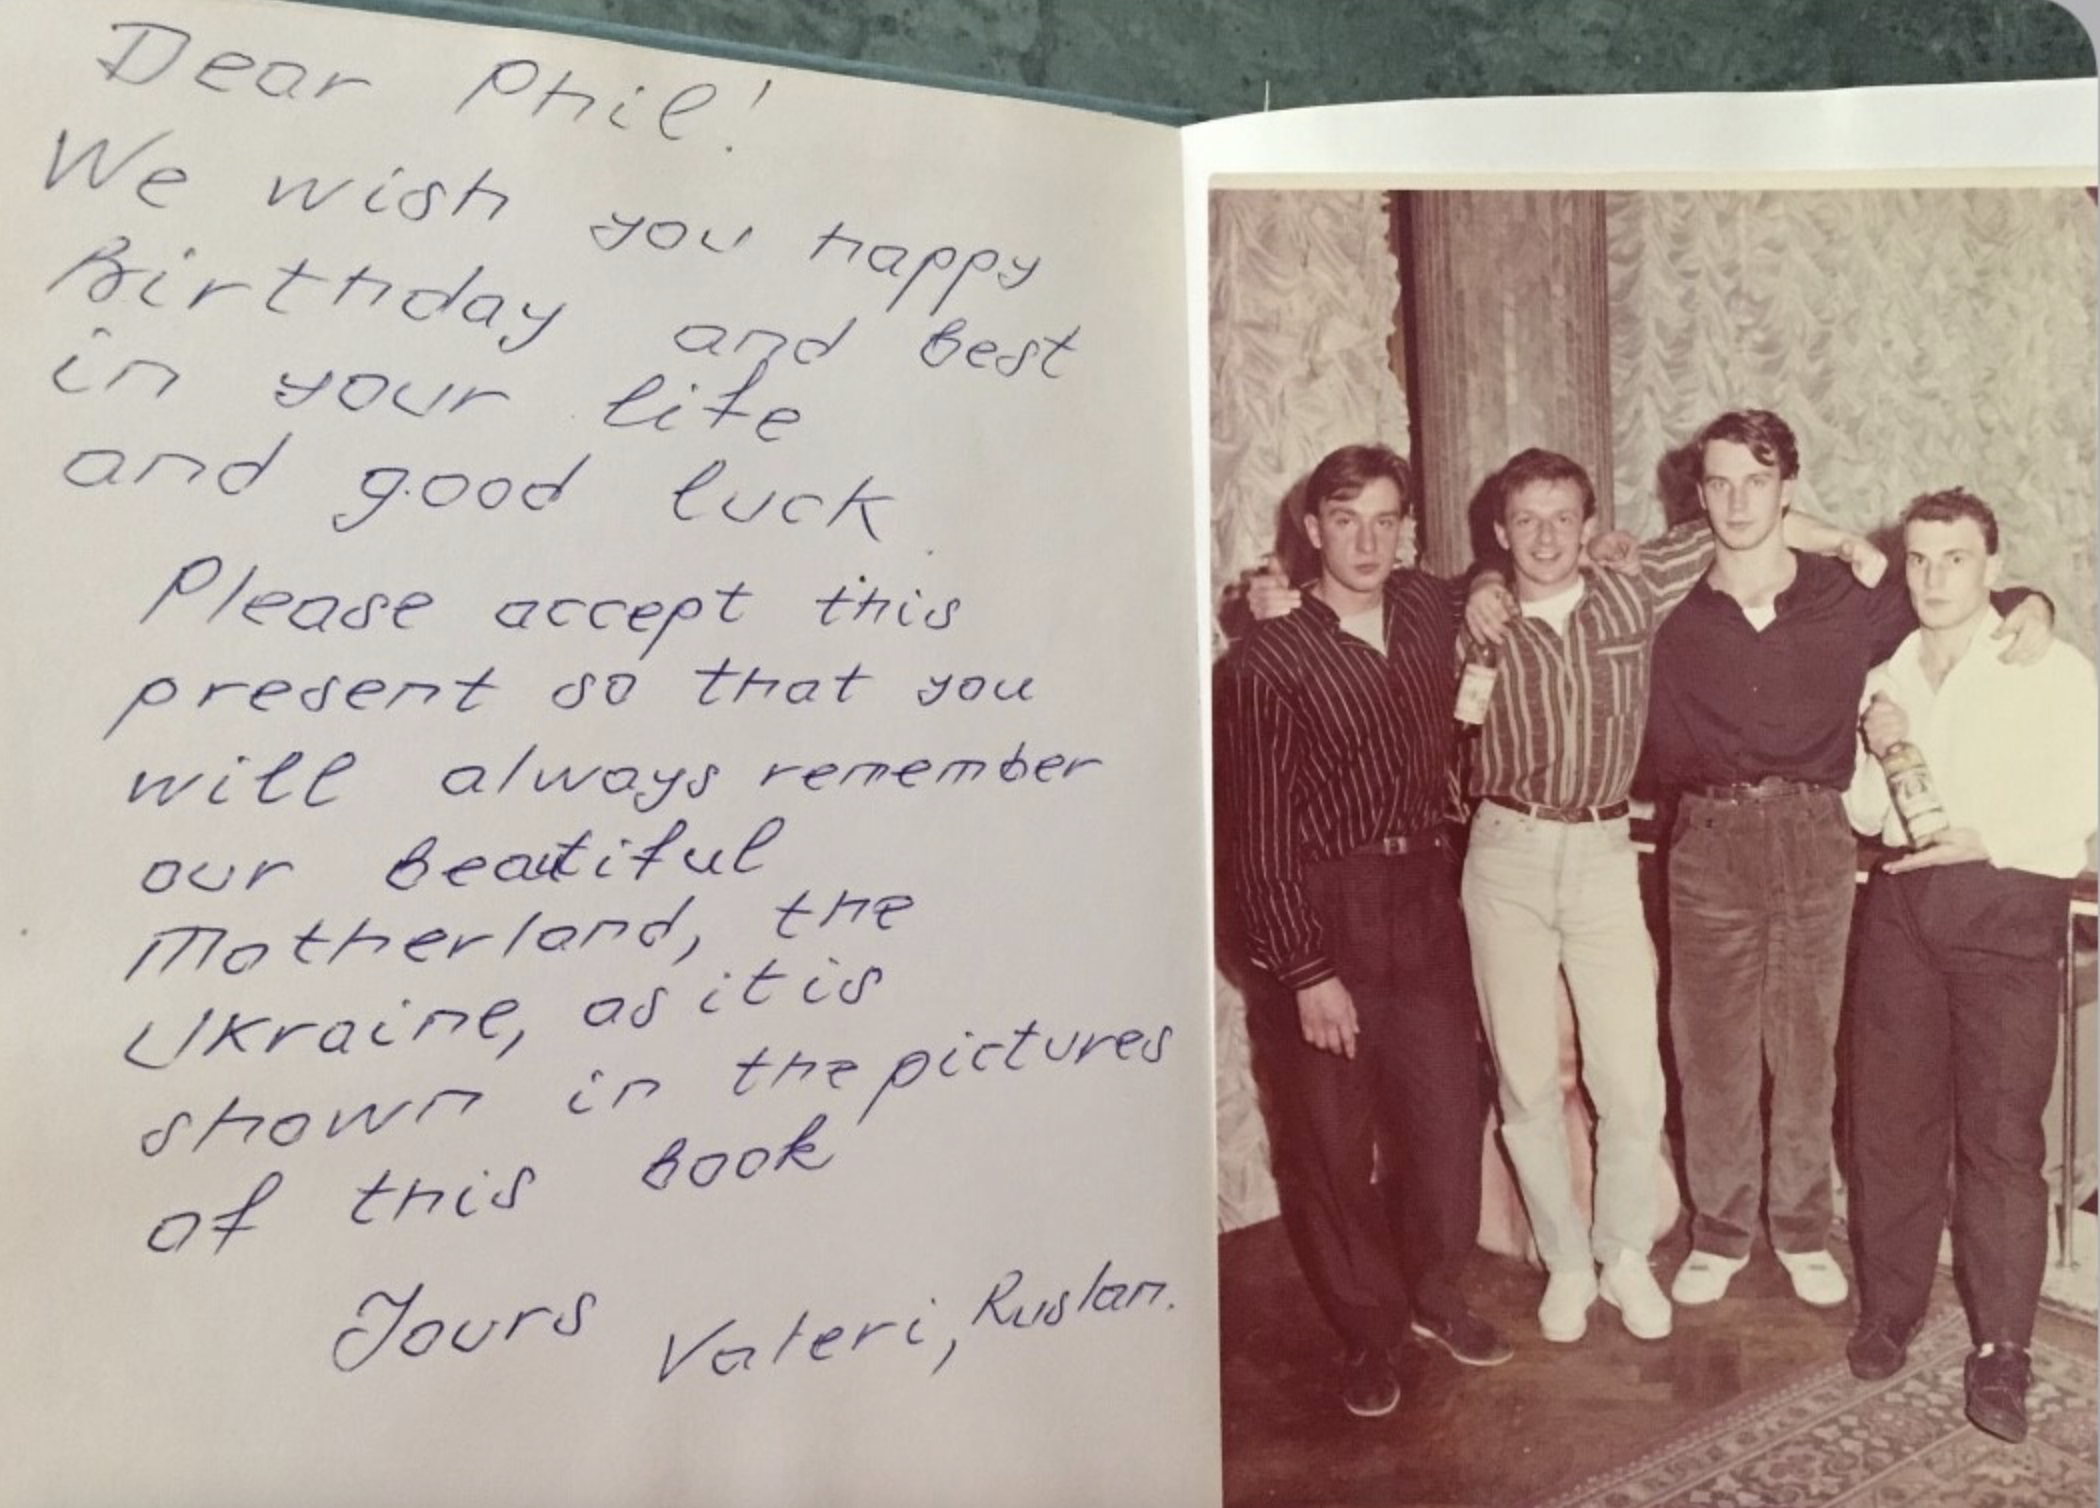 Dear Phil!
We wish you happy
Birthday and best
in your life
and good luck.
Please accept this
present so that you
will always remember
our beautiful
Motherland, the
Ukraine, as it is
shown in the pictures
of this book
Yours Valeri, Ruslan.